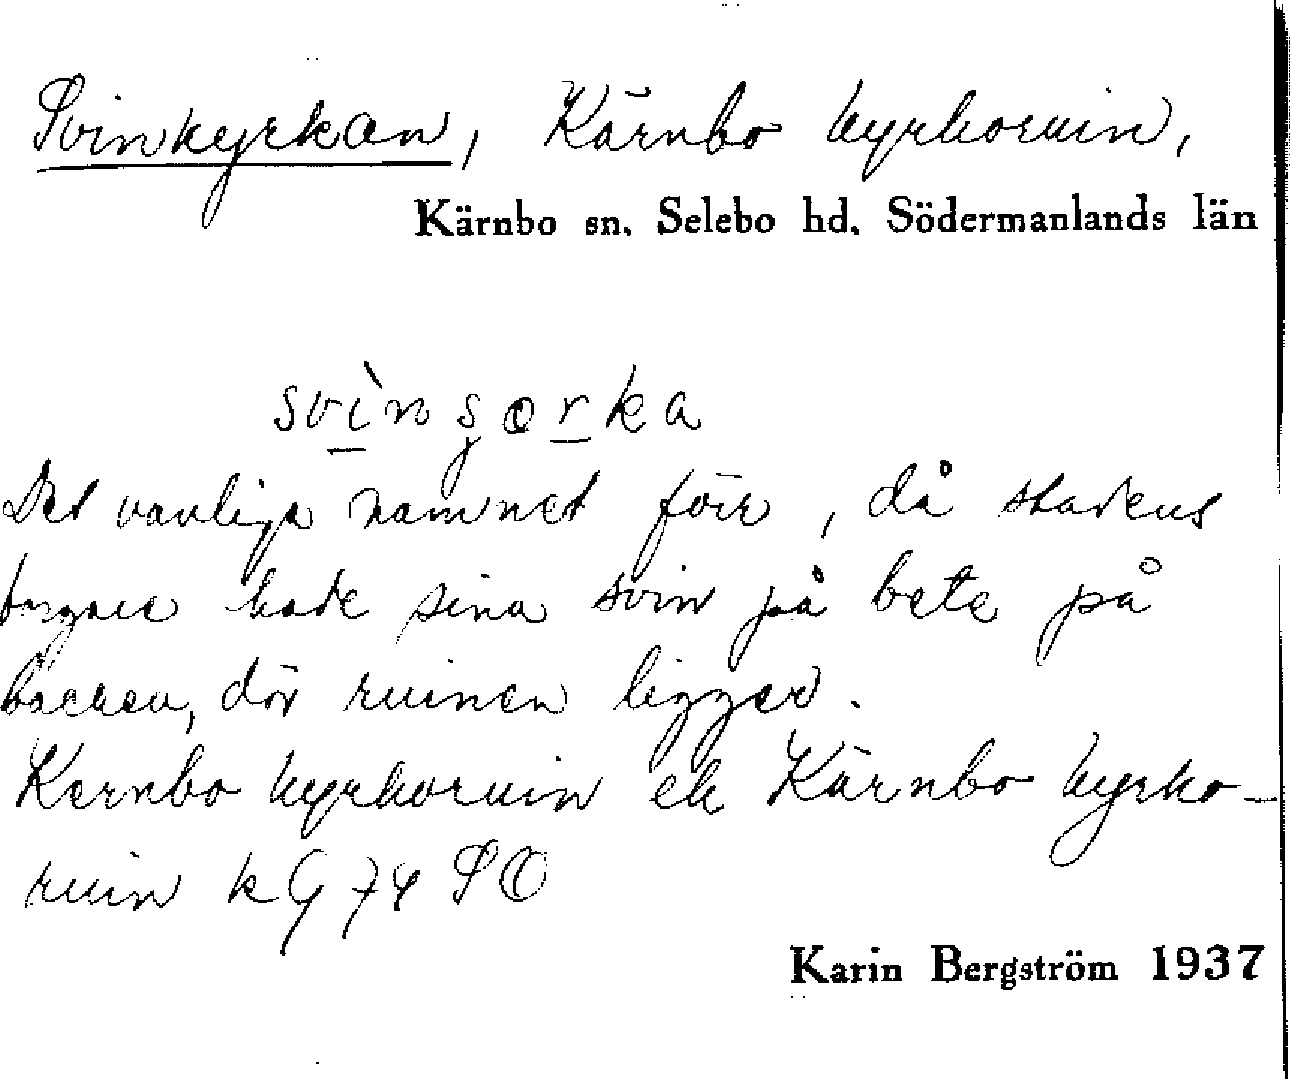 Svinkyrkan, Kärnbo kyrkoruin,
Kärnbo sn. Selebo hd. Södermanlands län
svìnşorka
Det vanliga namnet förr, då stadens
borgare hade sina svin på bete på
backen, där ruinen ligger.
Kernbo kyrkoruin ek Kärnbo kyrko-
ruin kG 74 SO
Karin Bergström 1937